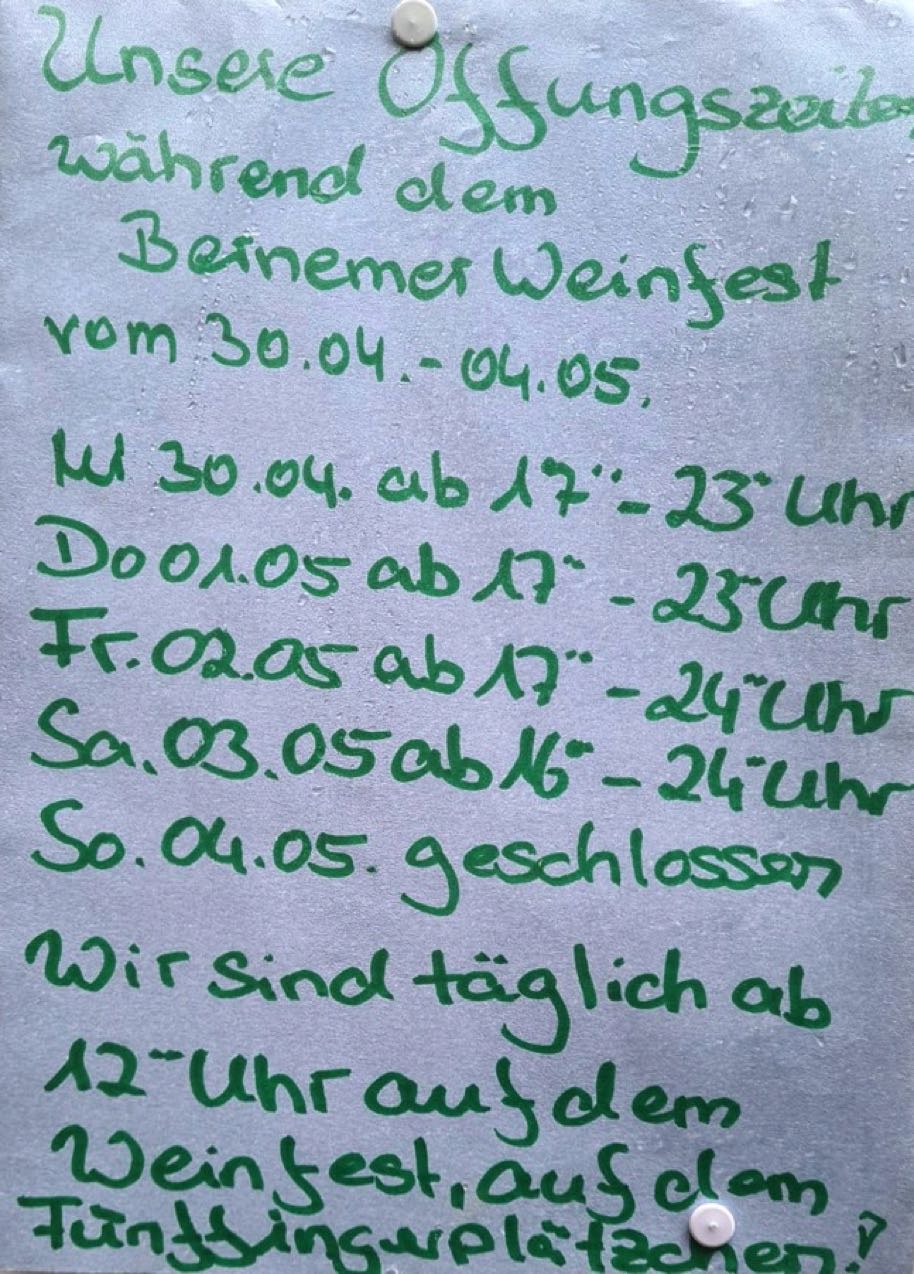 Unsere Öffungszeiten
während dem
Bernemer Weinfest
vom 30.04.-04.05.
Mi 30.04. ab 17°° - 23°° Uhr
Do 01.05 ab 17°° - 23°° Uhr
Fr. 02.05 ab 17°° - 24°° Uhr
Sa. 03.05 ab 16°° - 24°° Uhr
So. 04.05. geschlossen
Wir sind täglich ab
12°° Uhr auf dem
Weinfest, auf dem
Fünffingerplätzchen!